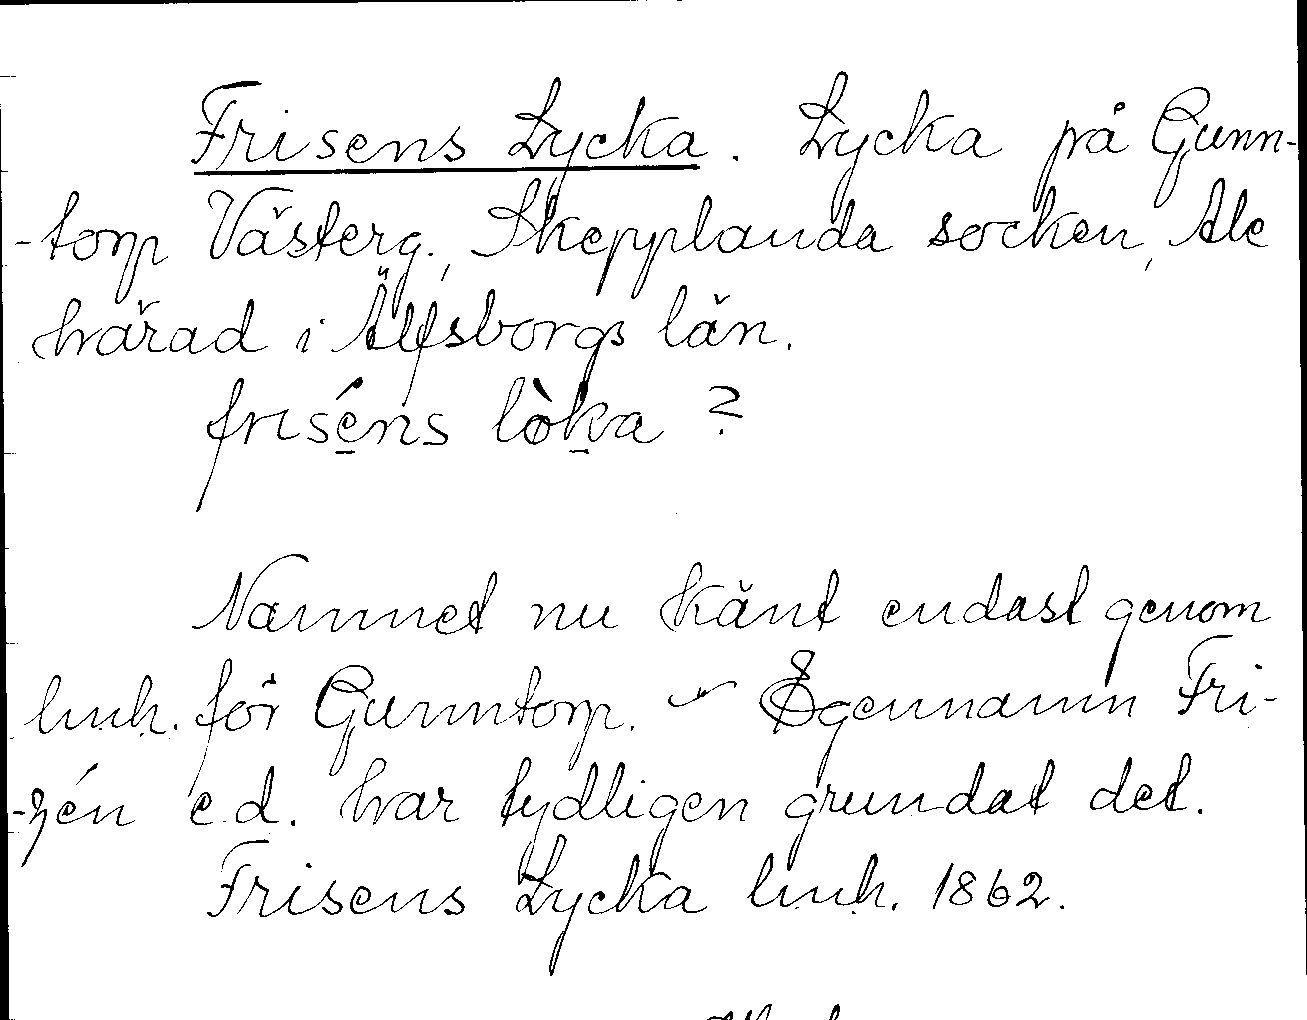 Frisens Lycka. Lycka på Gunn-
-torp Västerg., Skepplanda socken, Ale
härad i Älfsborgs län.
friséns lòka ?
Namnet nu känt endast genom
lmh. för Gunntorp. – Egennamn Fri-
-zén e.d. har tydligen grundat det.
Frisens Lycka lmh. 1862.